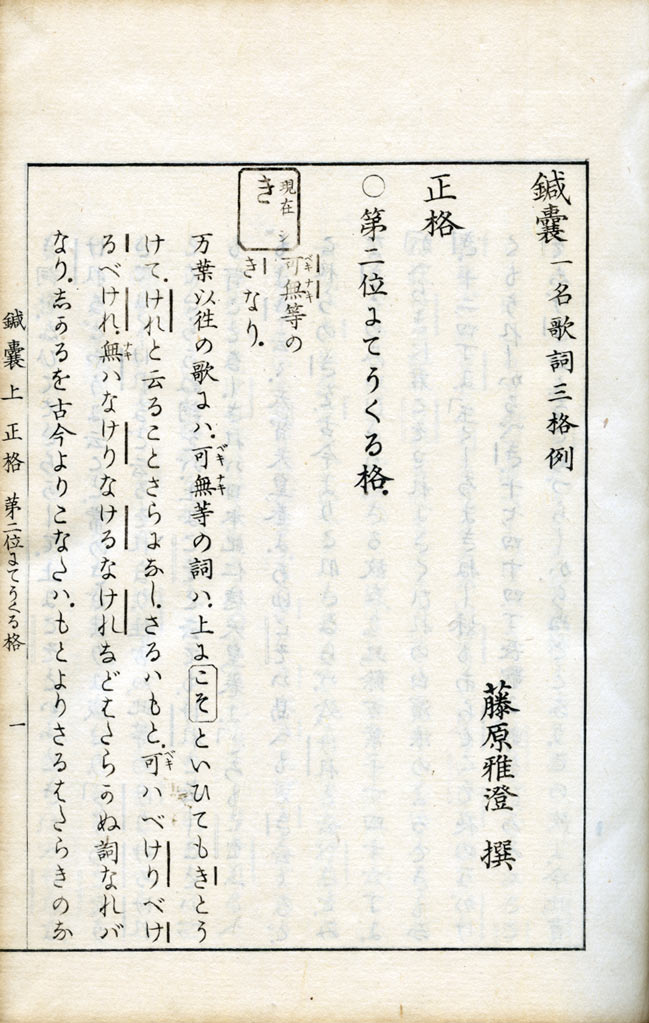 鍼囊一名歌詞三格例
藤原雅澄 撰
正格
○第二位にてうくる格、
現在 シ
き
可無等の
ベキ ナキ
きなり、
万葉以徃の歌にハ、可無等の詞ハ、上にこそといひてもきとう
ベキ ナキ
けて、けれと云ることさらになし、さるハもと、可ハべけりべけ
ベキ
るべけれ、無ハなけりなけるなけれなどはたらかぬ詞なれバ
ナキ
なり、しかるを古今よりこなたハ、もとよりさるはたらきのな
鍼囊上 正格 第二位にてうくる格 一